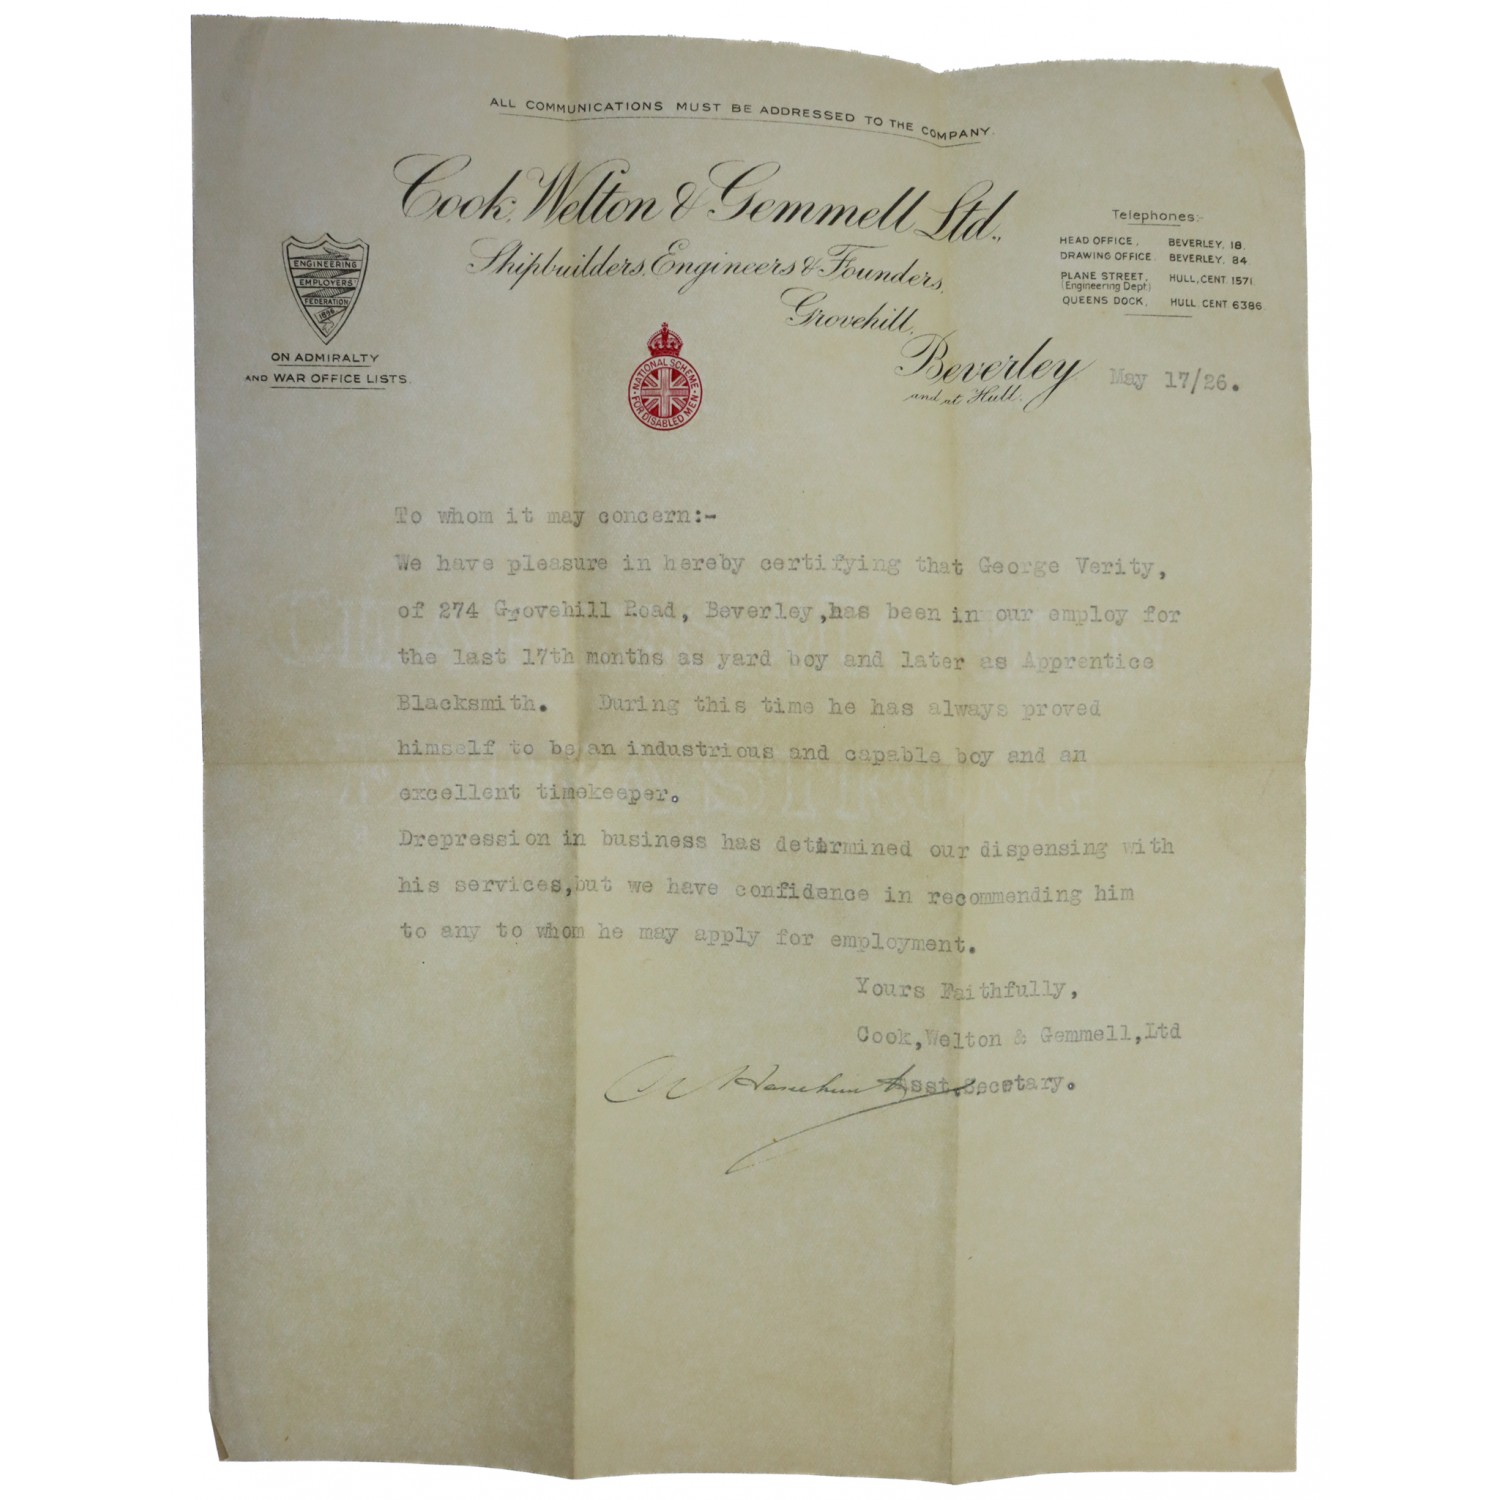 ALL COMMUNICATIONS MUST BE ADDRESSED TO THE COMPANY.
Cook, Welton & Gemmell Ltd.,
Shipbuilders, Engineers & Founders,
Grovehill,
Beverley
and at Hull.
May 17/26.
Telephones:-
HEAD OFFICE. BEVERLEY, 18.
DRAWING OFFICE. BEVERLEY. 84
PLANE STREET. HULL, CENT. 1571
(Engineering Dept)
QUEENS DOCK. HULL CENT. 6386.
ENGINEERING
EMPLOYERS'
FEDERATION
1896
ON ADMIRALTY
AND WAR OFFICE LISTS.
NATIONAL SCHEME
FOR DISABLED MEN
To whom it may concern:-
We have pleasure in hereby certifying that George Verity,
of 274 Grovehill Road, Beverley,has been in our employ for
the last 17th months as yard boy and later as Apprentice
Blacksmith. During this time he has always proved
himself to be an industrious and capable boy and an
excellent timekeeper.
Drepression in business has determined our dispensing with
his services,but we have confidence in recommending him
to any to whom he may apply for employment.
Yours Faithfully,
Cook,Welton & Gemmell,Ltd
Asst.Secetary.